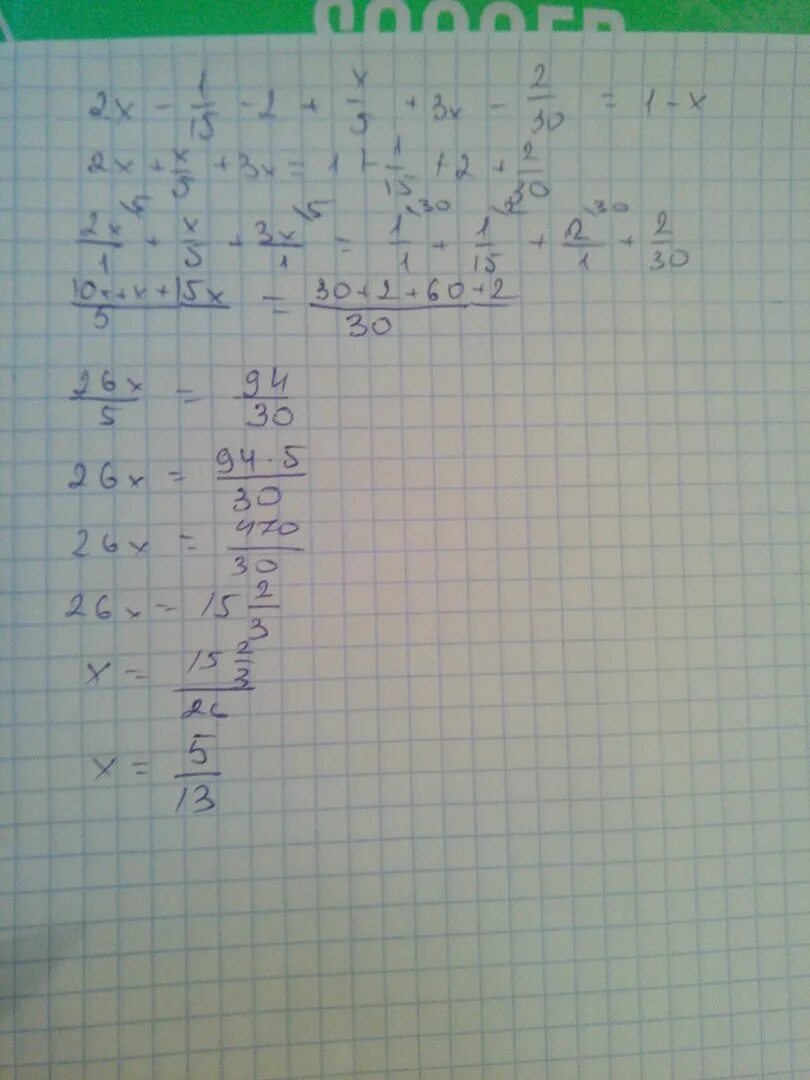 SOCCER
2x - 1/15 - 2 + x/5 + 3x - 2/30 = 1 - x
2x + x/5 + 3x = 1 + 1/15 + 2 + 2/30
2x/1 \5 + x/5 + 3x/1 \5 = 1/1 \30 + 1/15 \2 + 2/1 \30 + 2/30
10x+x+15x/5 = 30+2+60+2/30
26x/5 = 94/30
26x = 94·5/30
26x = 470/30
26x = 15 2/3
x = 15 2/3 / 26
x = 5/13